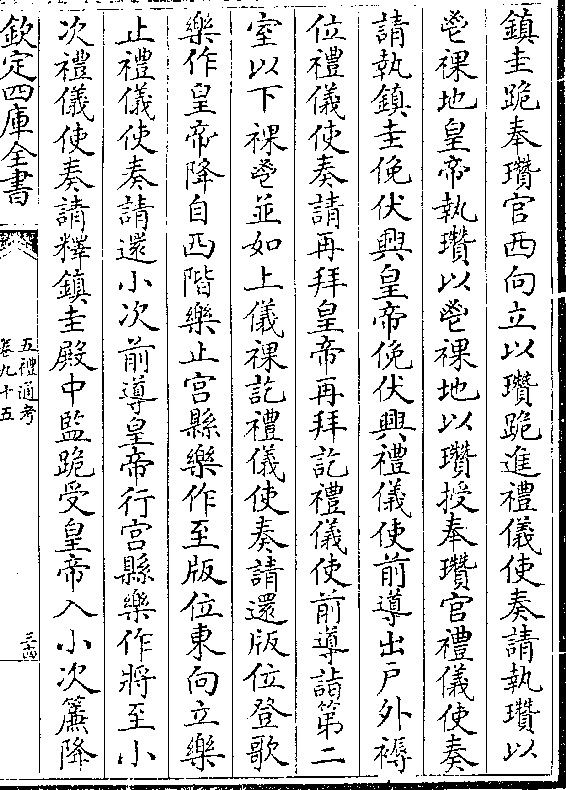 鎮圭跪奉瓚官西向立以瓚跪進禮儀使奏請執瓚以
鬯祼地皇帝執瓚以鬯祼地以瓚授奉瓚官禮儀使奏
請執鎮圭俛伏興皇帝俛伏興禮儀使前導出戶外褥
位禮儀使奏請再拜皇帝再拜訖禮儀使前導詣第二
室以下祼鬯並如上儀祼訖禮儀使奏請還版位登歌
樂作皇帝降自西階樂止宫縣樂作至版位東向立樂
止禮儀使奏請還小次前導皇帝行宫縣樂作將至小
次禮儀使奏請釋鎮圭殿中監跪受皇帝入小次簾降
欽定四庫全書
五禮通考
卷九十五
三四